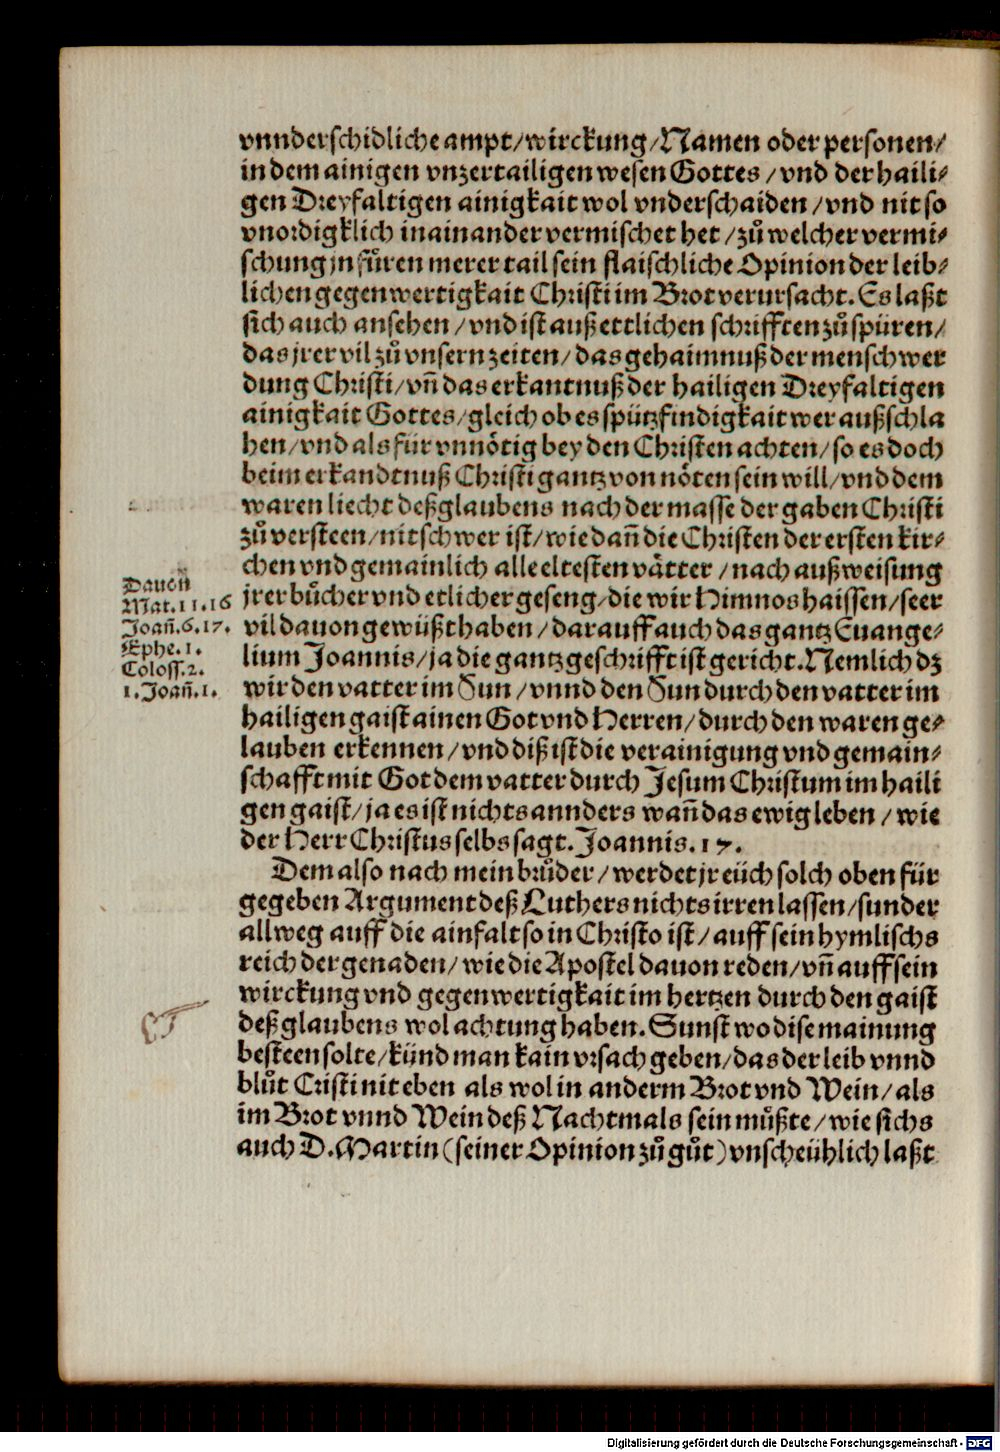 vnnderschidliche ampt/wirckung/Namen oder personen/
in dem ainigen vnzertailigen wesen Gottes/vnd der haili⸗
gen Dreyfaltigen ainigkait wol vnderschaiden/vnd nit so
vnordigklich inainander vermischet het/zů welcher vermi⸗
schung jn fůren merer tail sein flaischliche Opinion der leib⸗
lichen gegenwertigkait Christi im Brot verursacht. Es laßt
sich auch ansehen/vnd ist auß ettlichen schrifften zů spüren/
das jrer vil zů vnsern zeiten/das gehaimnuß der menschwer
dung Christi/vñ das erkantnuß der hailigen Dreyfaltigen
ainigkait Gottes/gleich ob es spützfindigkait wer außschla
hen/vnd als für vnnötig bey den Christen achten/so es doch
beim erkandtnuß Christi gantz von nöten sein will/vnd dem
waren liecht deß glaubens nach der masse der gaben Christi
zů versteen/nit schwer ist/wie dañ die Christen der ersten kir⸗
chen vnd gemainlich alle eltesten vätter/nach außweisung
jrer bůcher vnd etlicher geseng/die wir Himnos haissen/seer
vil dauon gewüßt haben/darauff auch das gantz Euange⸗
lium Joannis/ja die gantz geschrifft ist gericht. Nemlich dz
wir den vatter im Sun/vnnd den Sun durch den vatter im
hailigen gaist ainen Got vnd Herren/durch den waren ge⸗
lauben erkennen/vnd diß ist die verainigung vnd gemain⸗
schafft mit Got dem vatter durch Jesum Christum im haili
gen gaist/ja es ist nichts annders wañ das ewig leben/wie
der Herr Christus selbs sagt. Joannis. 17.
Dauoñ
Mat. 11. 16
Joañ. 6. 17.
Ephe. 1.
Coloss. 2.
1. Joañ. 1.
Dem also nach mein brůder/werdet jr eüch solch oben für
gegeben Argument deß Luthers nichts irren lassen/sunder
allweg auff die ainfalt so in Christo ist/auff sein hymlischs
reich der genaden/wie die Apostel dauon reden/vñ auff sein
wirckung vnd gegenwertigkait im hertzen durch den gaist
deß glaubens wol achtung haben. Sunst wo dise mainung
besteen solte/künd man kain vrsach geben/das der leib vnnd
blůt Cristi nit eben als wol in anderm Brot vnd Wein/als
im Brot vnnd Wein deß Nachtmals sein můßte/wie sichs
auch D. Martin (seiner Opinion zů gůt) vnscheühlich laßt
Digitalisierung gefördert durch die Deutsche Forschungsgemeinschaft - DFG